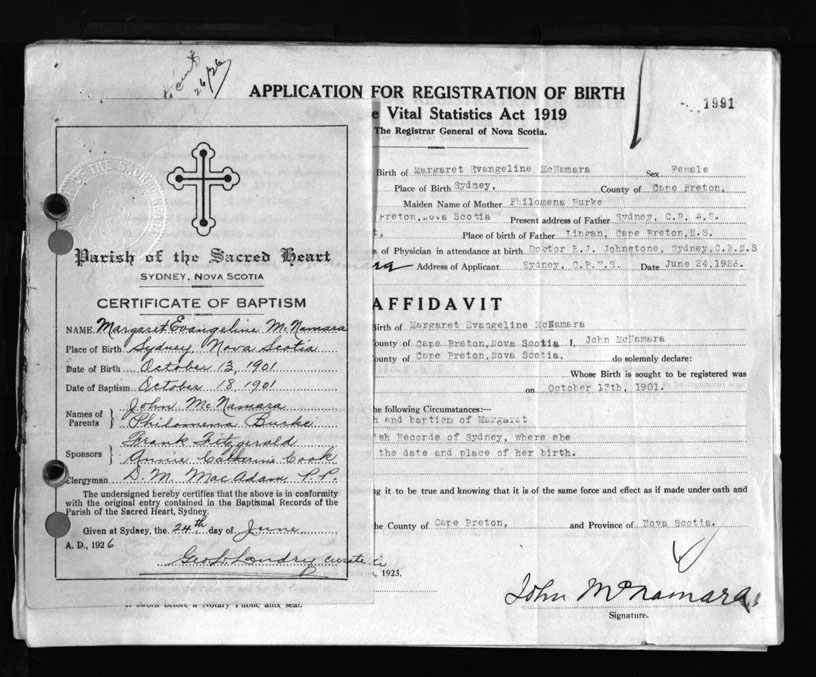 26/26
APPLICATION FOR REGISTRATION OF BIRTH
1991
e Vital Statistics Act 1919
The Registrar General of Nova Scotia.
Birth of Margaret Evangeline McNamara Sex Female
Place of Birth Sydney, County of Cape Breton.
Maiden Name of Mother Philomena Burke
Breton, Nova Scotia Present address of Father Sydney, C.B. N.S.
t, Place of birth of Father Lingan, Cape Breton, N.S.
s of Physician in attendance at birth Doctor R.J. Johnstone, Sydney, C.B.N.S
ara Address of Applicant Sydney, C.B.N.S. Date June 24, 1926.
AFFIDAVIT
Birth of Margaret Evangeline McNamara
ounty of Cape Breton, Nova Scotia I, John McNamara
ounty of Cape Breton, Nova Scotia. do solemnly declare:
Whose Birth is sought to be registered was
on October 13th, 1901.
he following Circumstances:—
h and baptism of Margaret
ish Records of Sydney, where she
the date and place of her birth.
ng it to be true and knowing that it is of the same force and effect as if made under oath and
he County of Cape Breton, and Province of Nova Scotia.
, 1923.
John McNamara
Signature.
If sworn before a Notary Public affix seal.
Parish of the Sacred Heart
SYDNEY, NOVA SCOTIA
CERTIFICATE OF BAPTISM
NAME Margaret Evangeline McNamara
Place of Birth Sydney Nova Scotia
Date of Birth October 13, 1901
Date of Baptism October 18 1901
Names of Parents } John McNamara
Philomena Burke
Sponsors } Frank Fitzgerald
Annie Catherine Cook
Clergyman D. M. MacAdam P.P.
The undersigned hereby certifies that the above is in conformity
with the original entry contained in the Baptismal Records of the
Parish of the Sacred Heart, Sydney.
Given at Sydney, the 24th day of June
A. D., 1926
Geo. Landry curate